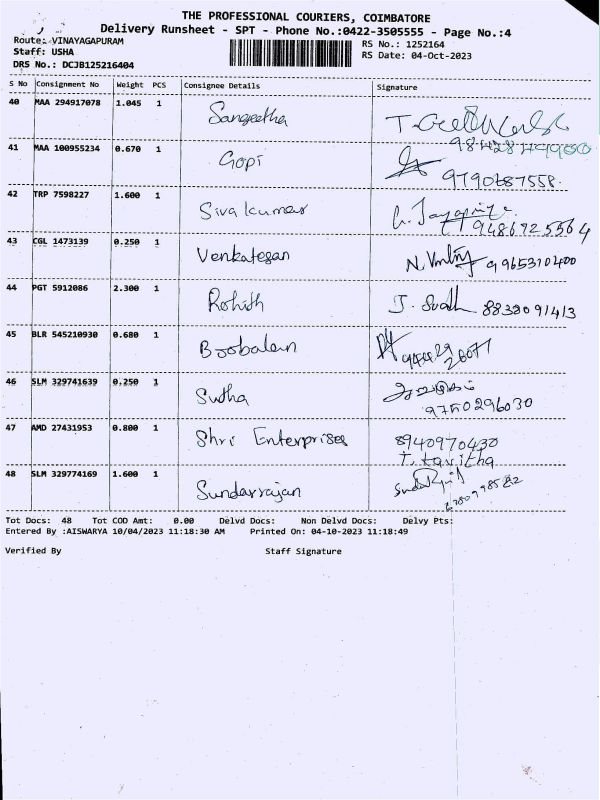 THE PROFESSIONAL COURIERS, COIMBATORE
Delivery Runsheet - SPT - Phone No.:0422-3505555 - Page No.:4
Route: VINAYAGAPURAM
RS No.: 1252164
Staff: USHA
RS Date: 04-Oct-2023
DRS No.: DCJB125216404
S No Consignment No Weight PCS Consignee Details Signature
40 MAA 294917078 1.045 1 Sangeetha
41 MAA 100955234 0.670 1 Gopi
9790687558
42 TRP 7598227 1.600 1 Sivakumar
9486725564
43 CGL 1473139 0.250 1 Venkatesan 9965310400
44 PGT 5912086 2.300 1 Rohith 8833091413
45 BLR 545210930 0.680 1 Boobalan
46 SLM 329741639 0.250 1 Sutha
9750296030
47 AMD 27431953 0.800 1 Shri Enterprises 8940970430
T. Kavitha
48 SLM 329774169 1.600 1 Sundarrajan
Tot Docs: 48 Tot COD Amt: 0.00 Delvd Docs: Non Delvd Docs: Delvy Pts:
Entered By :AISWARYA 10/04/2023 11:18:30 AM Printed On: 04-10-2023 11:18:49
Verified By Staff Signature